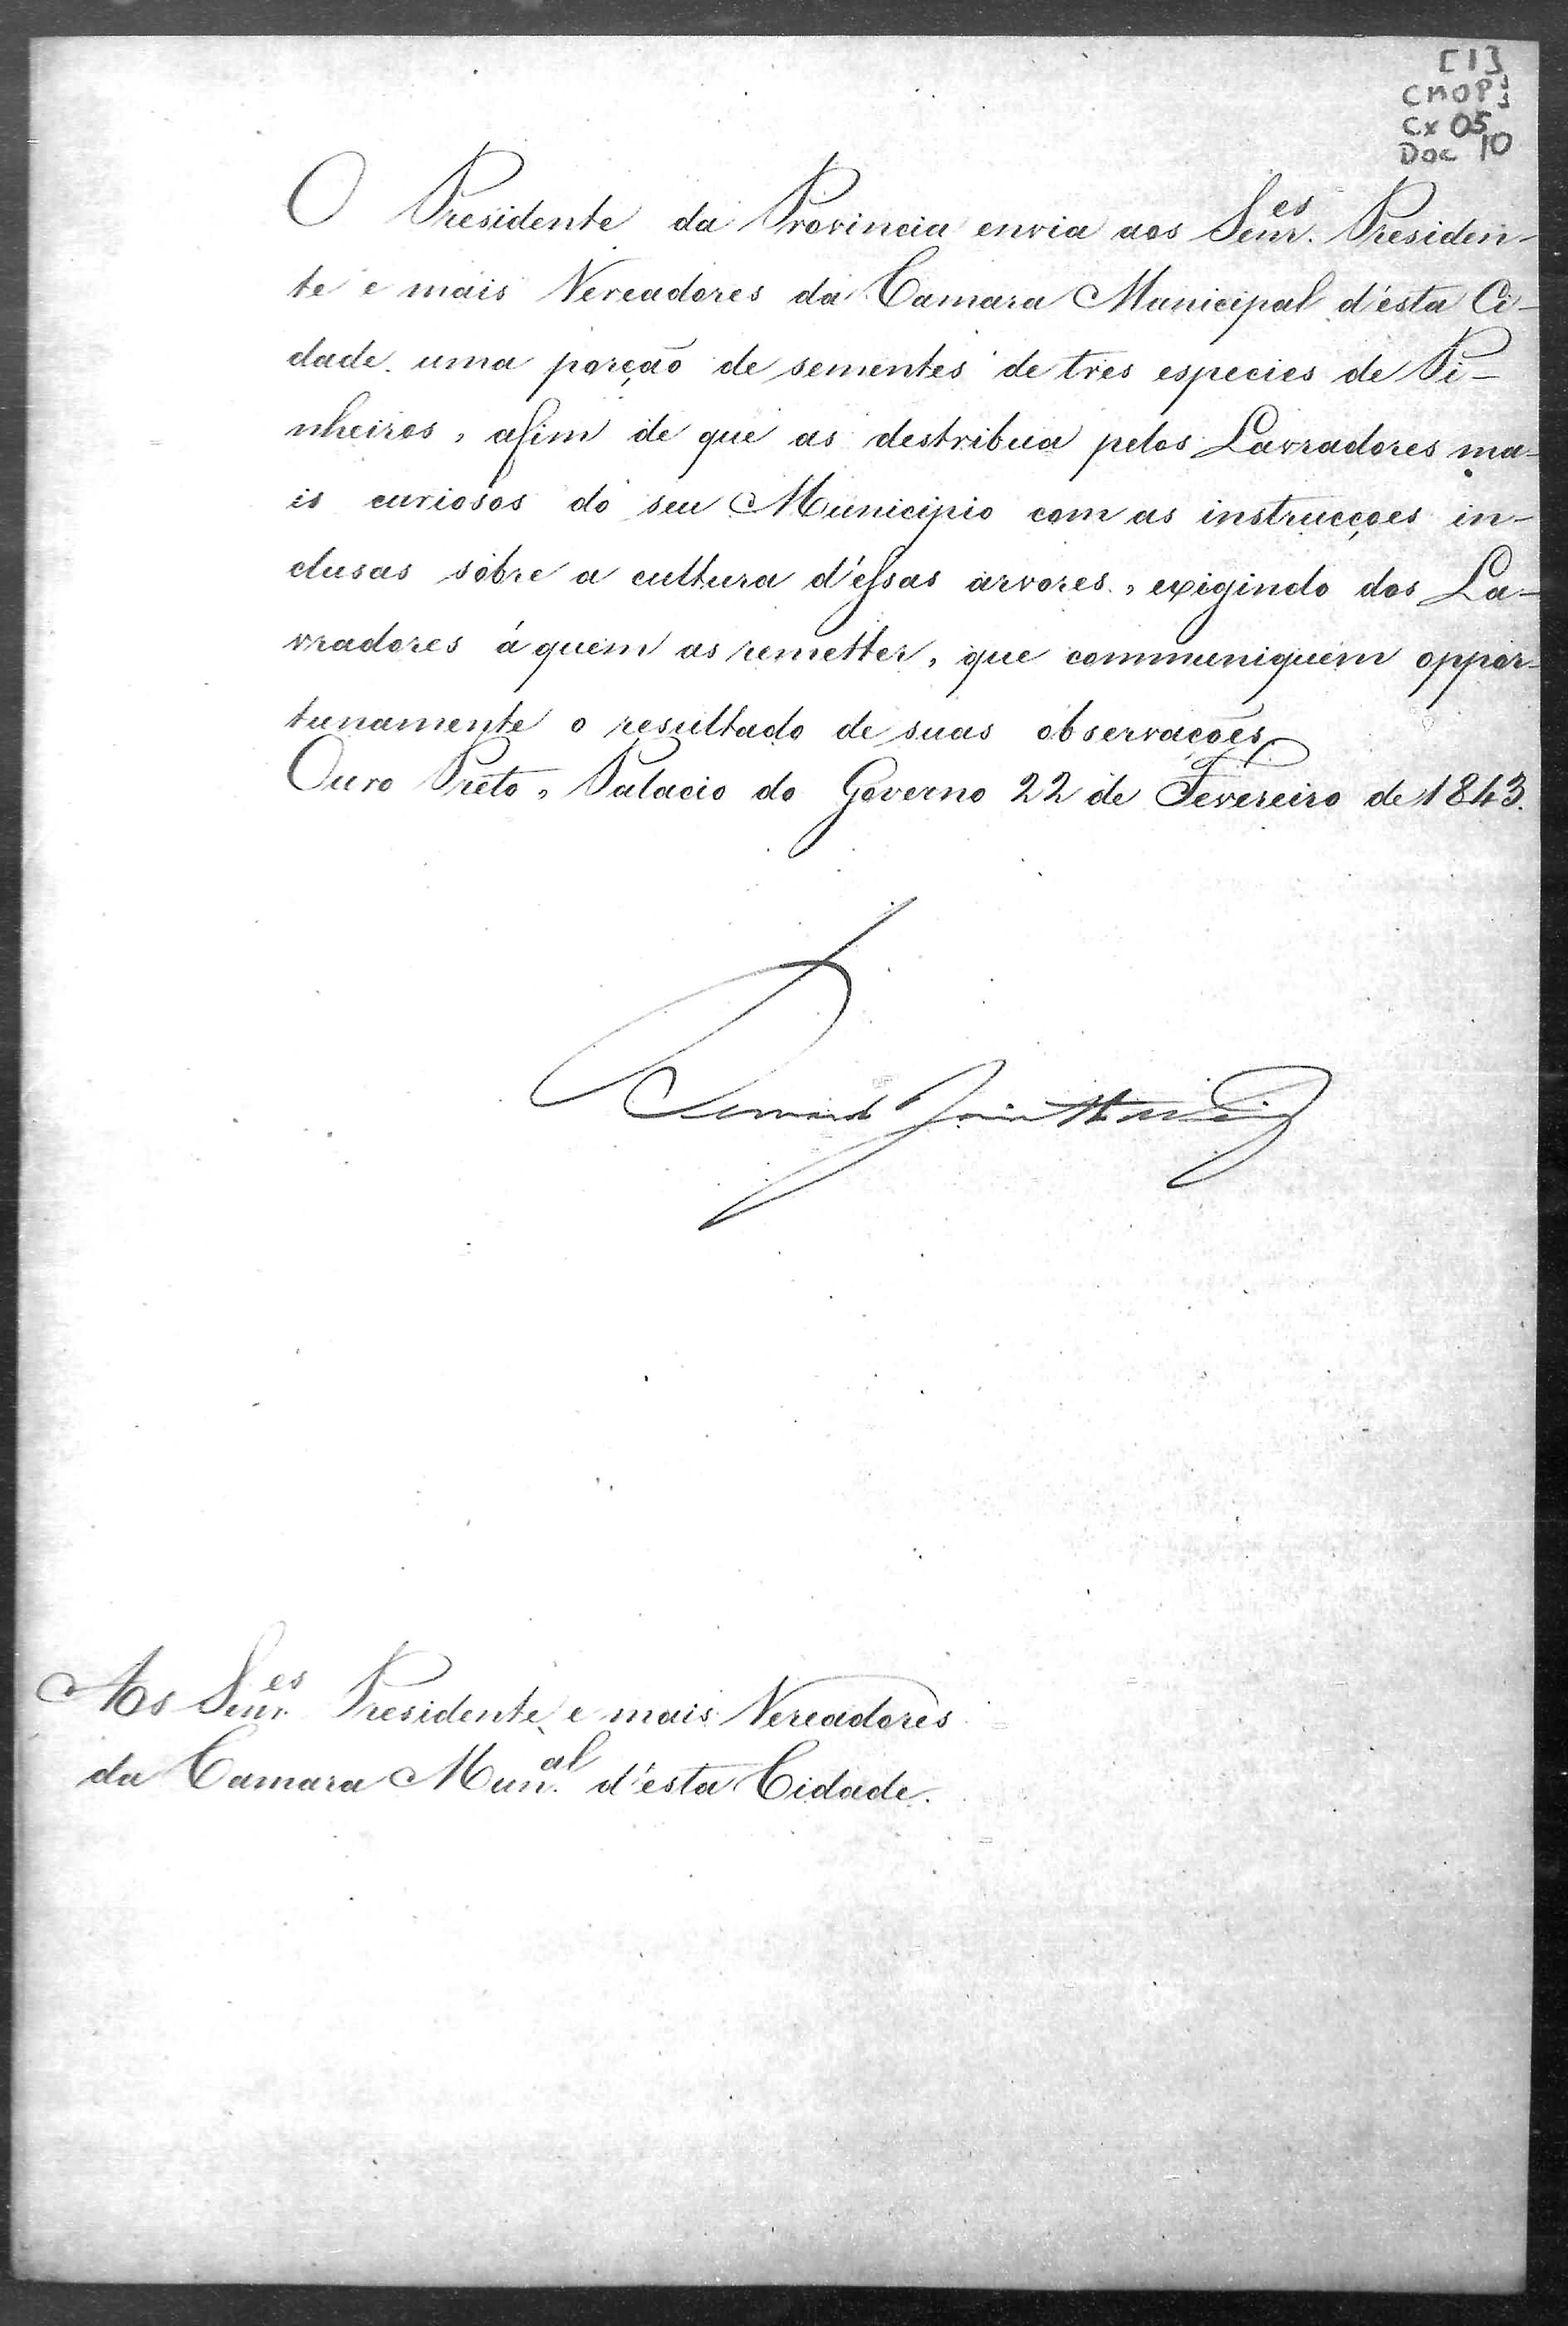 [1]
CMOP
Cx 05
Doc 10
O Presidente da Provincia envia aos Senr.es Presiden-
te e mais Vereadores da Camara Municipal d'esta Ci-
dade uma porção de sementes de tres especies de Pi-
nheiros, afim de que as destribua pelos Lavradores ma-
is curiosos do seu Municipio com as instrucções in-
clusas sobre a cultura d'essas arvores, exigindo dos La-
vradores á quem as remetter, que communiquem oppor-
tunamente o resultado de suas observações
Ouro Preto, Palacio do Governo 22 de Fevereiro de 1843.
Aos Senr.es Presidente e mais Vereadores
da Camara Mun.al d'esta Cidade.